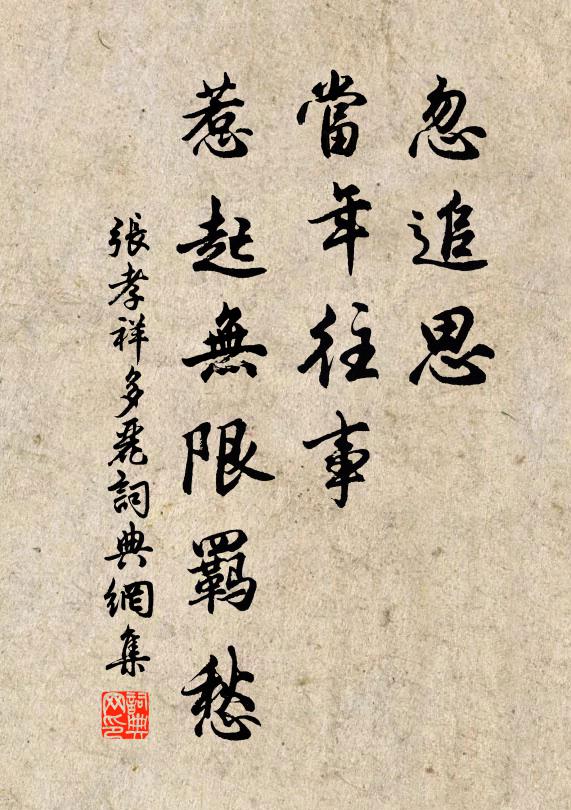 忽追思
當年往事
惹起無限羈愁
張孝祥多麗詞典網集
詞典網印